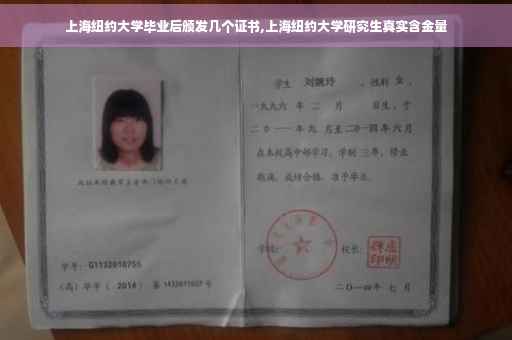 上海纽约大学毕业后颁发几个证书,上海纽约大学研究生真实含金量
学生 刘婉玲 ,性别 女 ,
一九九六 年 二 月 日生,于
二〇一一 年 九 月至 二〇一四 年 六 月
在本校高中部学习,学制 三 年,修业
期满,成绩合格,准予毕业。
学号: G1132010755
(高)毕字( 2014 )第 1432011027 号
校长:
二〇一四 年 七 月